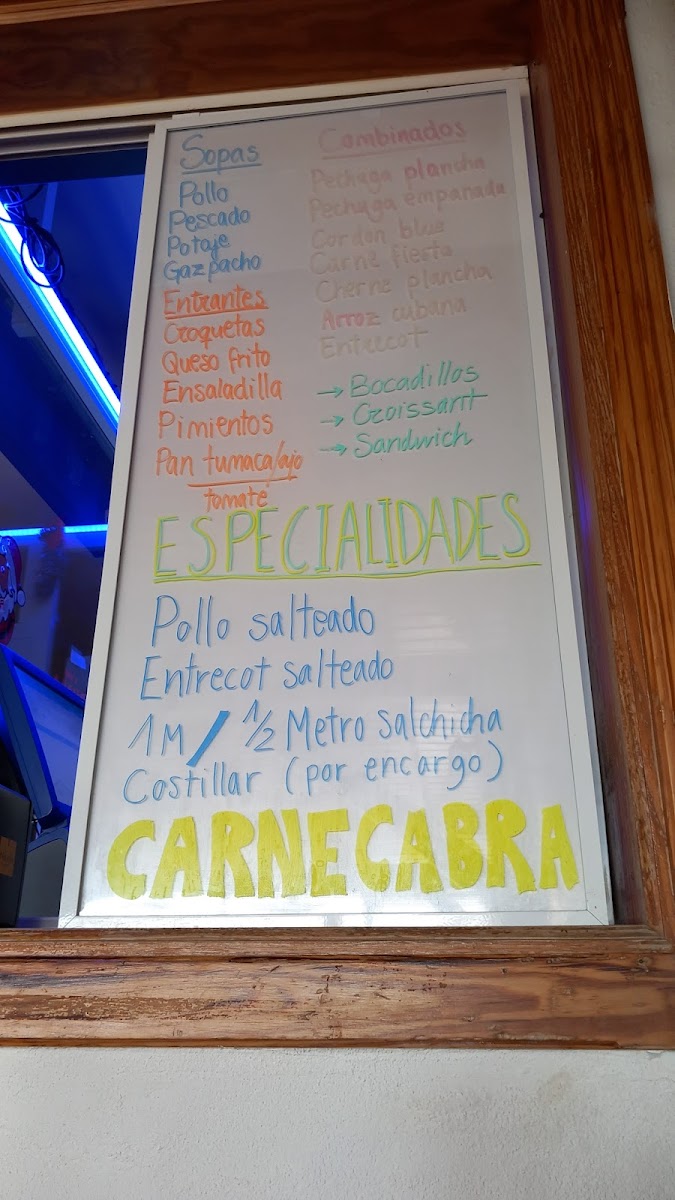 Sopas
Pollo
Pescado
Potaje
Gazpacho
Entrantes
Croquetas
Queso frito
Ensaladilla
Pimientos
Pan tumaca/ajo
tomate
Combinados
Pechuga plancha
Pechuga empanada
Cordon blue
Carne fiesta
Cherne plancha
Arroz cubana
Entrecot
→ Bocadillos
→ Croissant
→ Sandwich
ESPECIALIDADES
Pollo salteado
Entrecot salteado
1M / 1/2 Metro salchicha
Costillar (por encargo)
CARNE CABRA